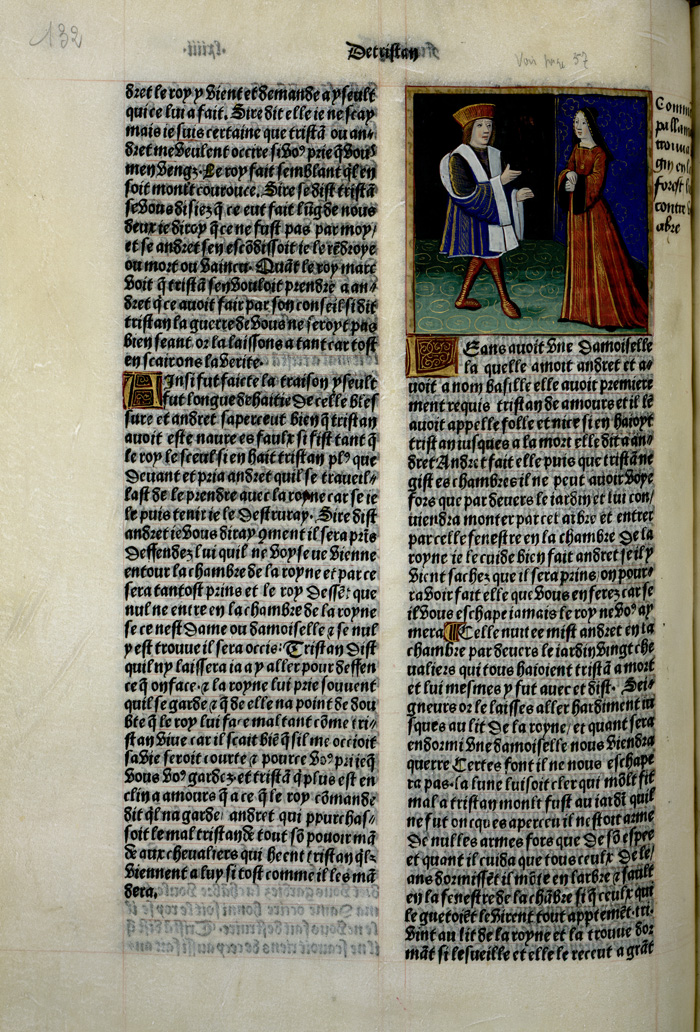 132
De tristan
Voir page 57
dret le roy y vient et demande a yseult
qui ce lui a fait. Sire dit elle ie ne scay
mais ie suis certaine que tristā ou an-
dret me veulent occire si voꝰ prie q̄ vous
men vengz. Le roy fait semblant ql̄ en
soit moult courouce. Sire se dist tristā
se vous disiez q̄ ce eut fait lūg de nous
deux ie diroy q̄ ce ne fust pas par moy/
et se andret sen escōdissoit ie le rēdroye
ou mort ou vaincu. Quāt le roy marc
voit q̄ tristā sen vouloit prendre a an-
dret q̄ ce auoit fait par son conseil si dit
tristan la guerre de vous ne seroyt pas
bien seant. or la laissons a tant car tost
en scairons la verite.
Ainsi fut faicte la traison yseult
fut longue dehaitie De celle bles
sure et andret saperceut bien q̄ tristan
auoit este naure es faulx si fist tant q̄
le roy le sceul si en hait tristan plꝰ que
Deuant et pria andret quil se traueil-
last de le prendre auec la royne car se ie
le puis tenir ie le Destruray. Sire dist
andret ie vous diray ꝯment il sera prīs
Deffendez lui quil ne voyse ne vienne
entour la chambre de la royne et par ce
sera tantost prins et le roy Deffēt que
nul ne entre en la chambre de la royne
se ce nest Dame ou damoiselle ⁊ se nul
y est trouue il sera occis. Tristan Dist
quil ny laissera ia a y aller pour deffen
ce q̄ on face. ⁊ la royne lui prie souuent
quil se garde ⁊ q̄ de elle na point de dou
bte q̄ le roy lui face mal tant cōme tri-
stan viue car il scait biē q̄ sil me occioit
sa vie seroit courte ⁊ pource voꝰ pri ie q̄
vous voꝰ gardez. et tristā q̄ plus est en
clin a amours q̄ a ce q̄ le roy cōmande
dit ql̄ na garde. andret qui ppurchas-
soit le mal tristan de tout sō pouoir mā
de aux cheualiers qui heent tristan ql̄z
viennent a luy si tost comme il les mā
dera.
Leans auoit vne Damoiselle
la quelle amoit andret et a-
uoit a nom basille elle auoit premiere
ment requis tristan de amours et il lē
auoit appelle folle et nice si en haioyt
tristan iusques a la mort elle dit a an-
dret Andret fait elle puis que tristā ne
gist es chambres il ne peut auoir voye
fors que par deuers le iardin et lui con/
uiendra monter par cel arbre et entrer
par celle fenestre en la chambre De la
royne ie le cuide bien fait andret se il y
vient sachez que il sera prins/on pour-
ra voir fait elle que vous en ferez car se
il vous eschape iamais le roy ne voꝰ ay
mera. Celle nuit ee mist andret en la
chambre par deuers le iardin vingt che
ualiers qui tous haioient tristā a mort
et lui mesmes y fut auec et dist. Sei-
gneurs or le laisses aller hardiment iu
sques au lit De la royne/ et quant sera
endormi vne damoiselle nous viendra
querre Certes font il ne nous eschape
ra pas. la lune luisoit cler qui mōlt fit
mal a tristan moult fust au iardī quil
ne fut oncques aperceu il nestoit arme
De nulles armes fors que De sō espee
et quant il cuida que tous ceulx De le/
ans dormissēt il mōte en larbre ⁊ sault
en la fenestre de la chābre si q̄ ceulx qui
le guetoiēt le virent tout appertemēt. tri-
vint au lit de la royne et la trouue dor
māt si lesueille et elle le recent a grāt
Comm
pallam
trouua
gny en l
forest l
contre
abre